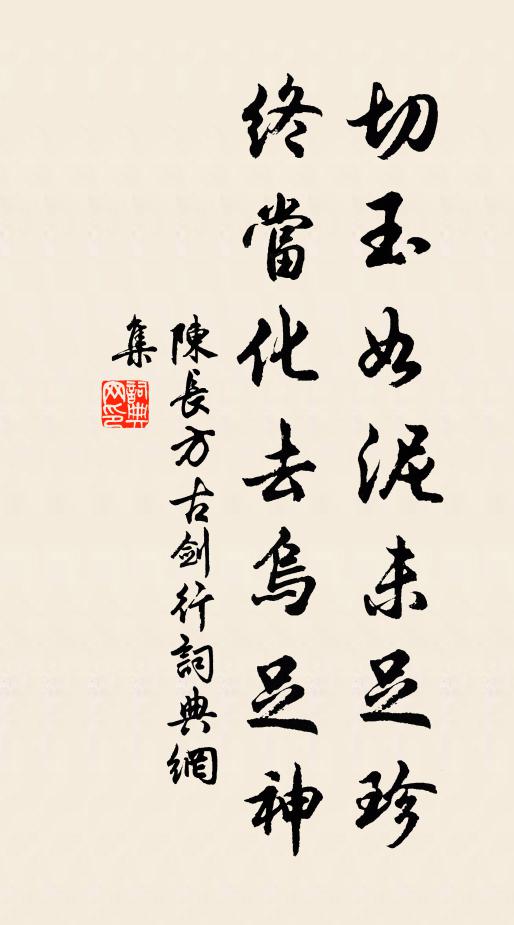 切玉如泥未足珍
終當化去烏足神
陳長方古劍行詞典網
集
詞典
网印